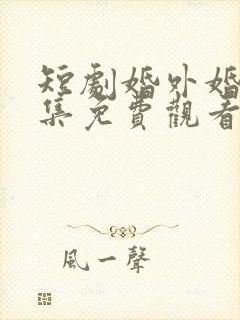 短劇婚外婚
集免費觀看
風一聲